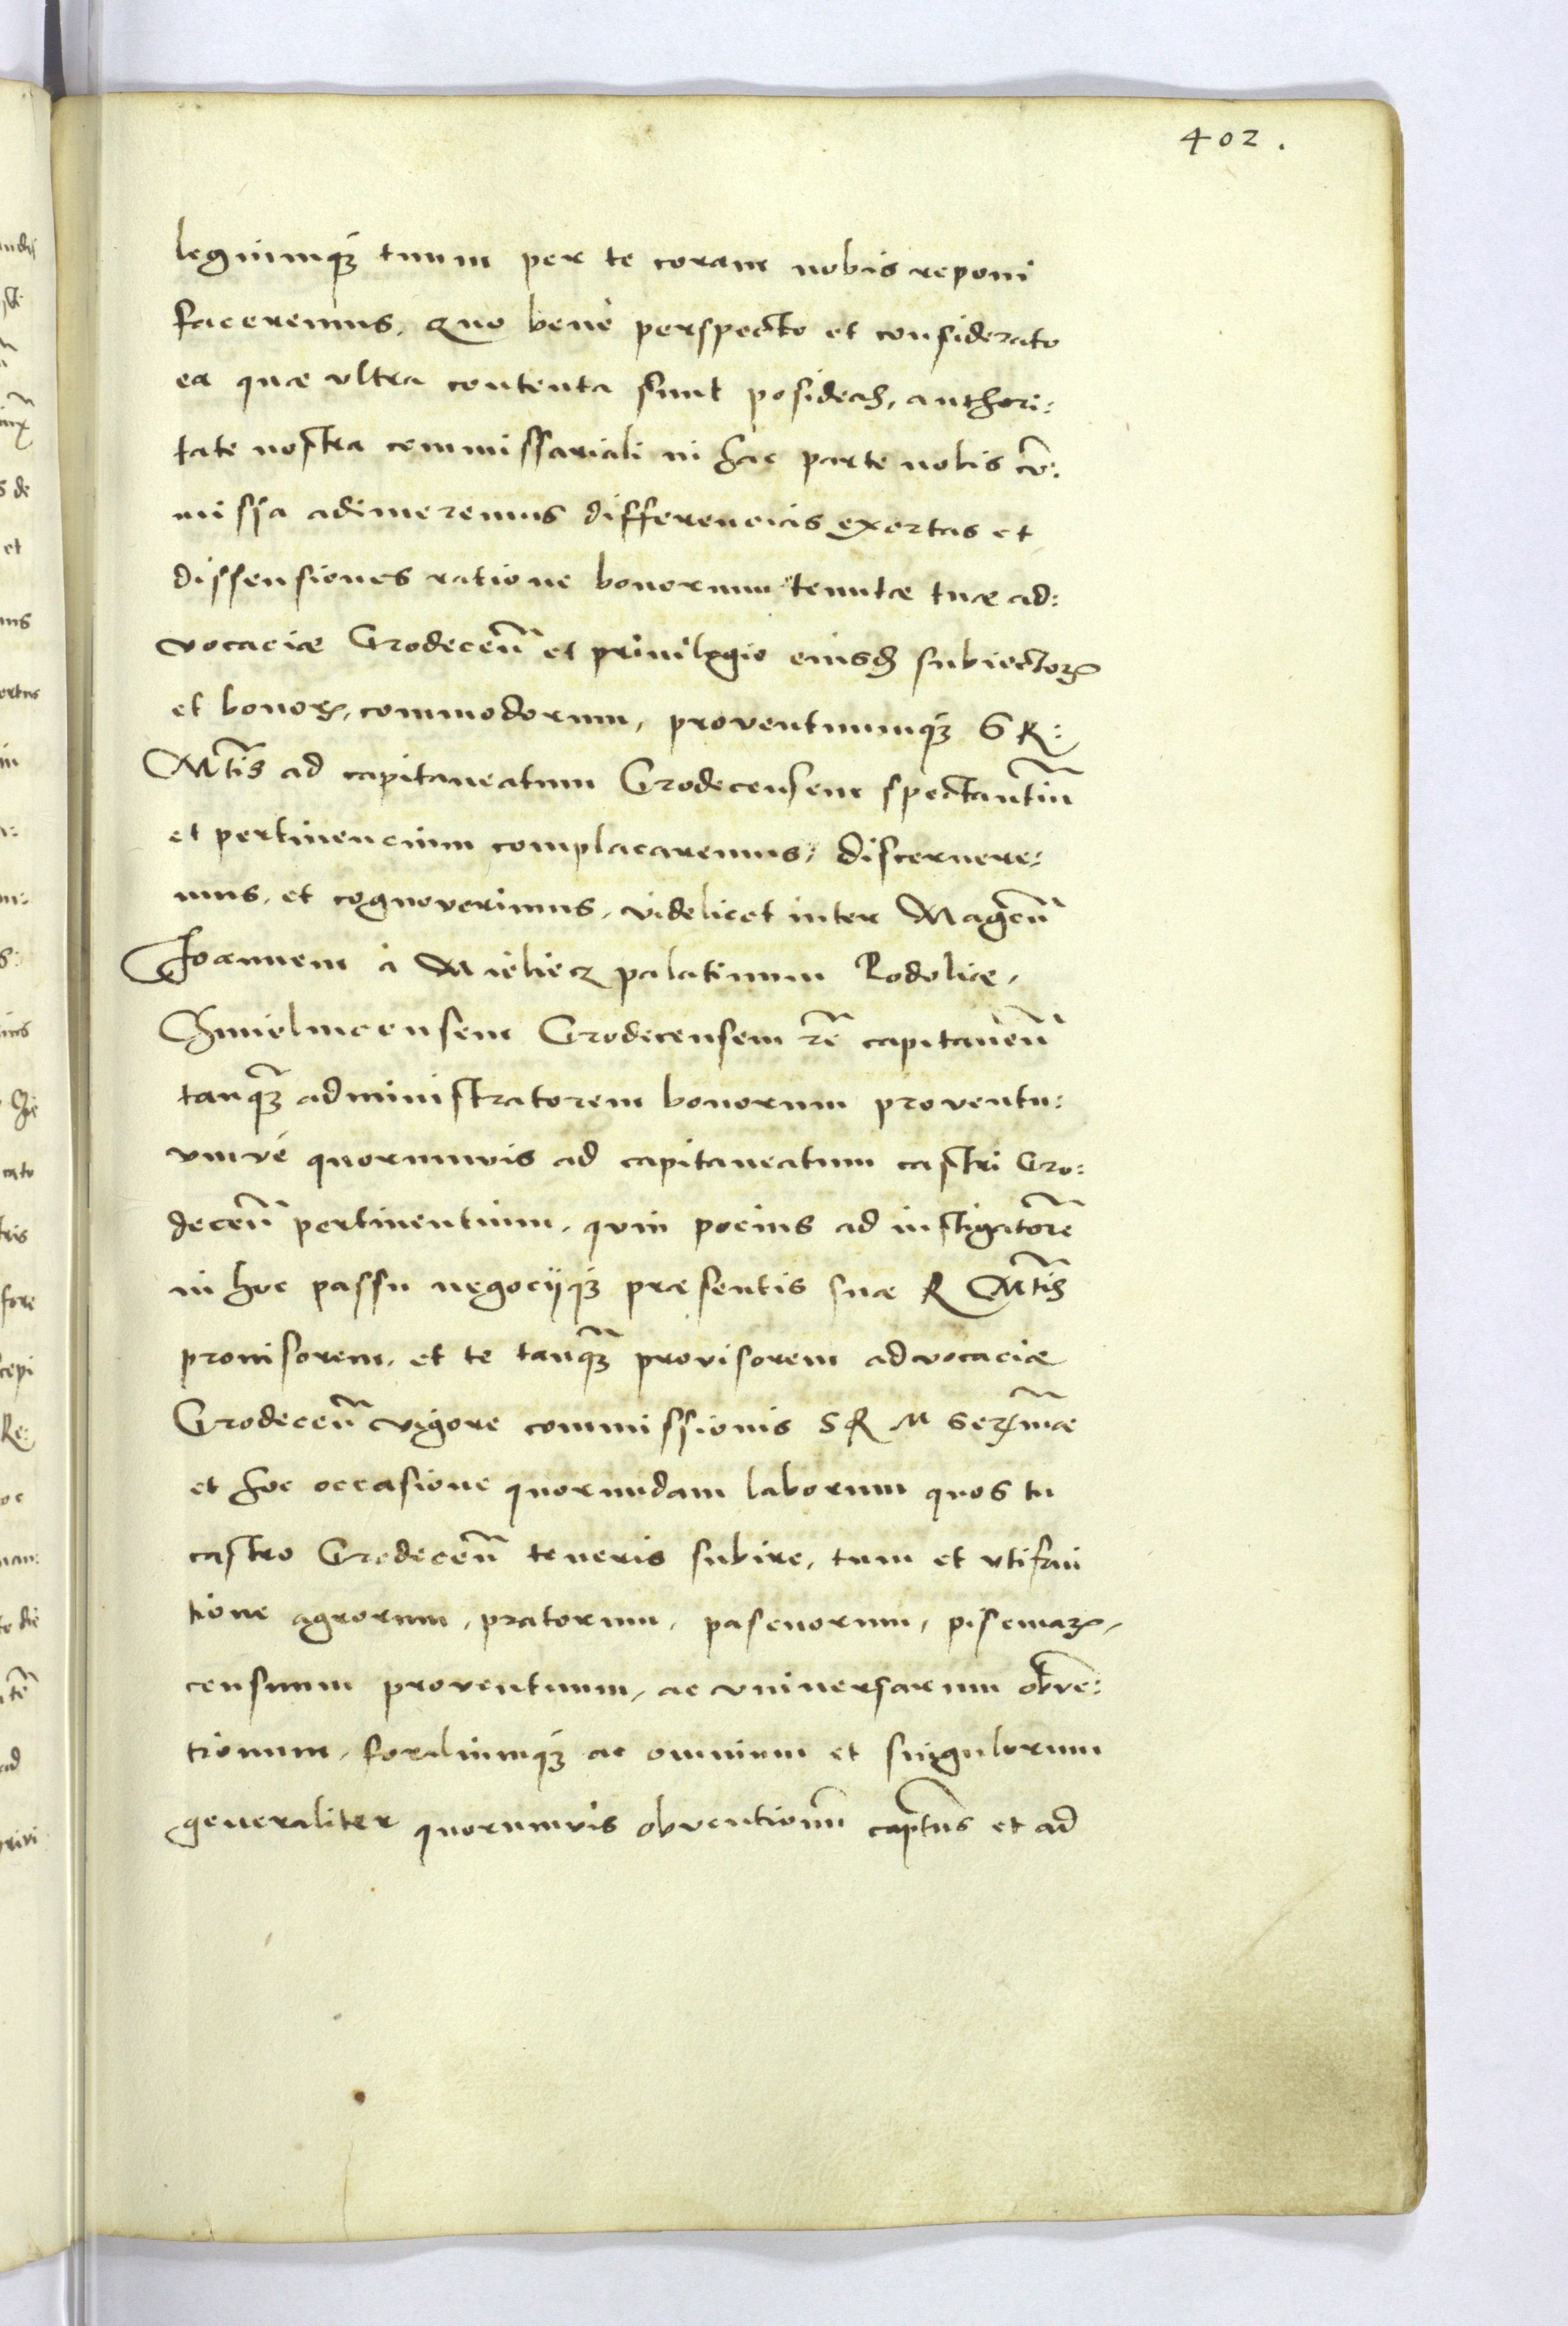 402.
legiumq3 tuum per te coram nobis reponi
faceremus, quo bene perspecto et considerato
ea quae ultra contenta sunt posideas, authori:
tate nostra commissariali in hac parte nobis cō:
missa adimeremus differencias exortas et
dissensiones ratione bonorum tenutae tuae ad:
vocaciae Grodeceñ et privilegio eiusd subiectoꝝ
et bonoꝝ, commodorum, proventuumq3 S R:
Mtis ad capitaneatum Grodecensem spectantiũ
et pertinencium complacaremus, discernere:
mus, et cognoverimus, videlicet inter Magcũ
Joannem à Mieliecz palatinum Podoliae,
Chmielnicensem Grodecensem rē capitaneũ
tanq3 administratorem bonorum proventu:
umvé quorumvis ad capitaneatum castri Gro:
deceñ pertinentium, quin pocius ad instigatorē
in hoc passu negocijq3 praesentis suae R Mtis
promisorem, et te tanq3 provisorem advocaciae
Grodeceñ vigore commissionis S R M Serm̃ae
et hoc occasione quorundam laborum quos tu
castro Grodeceñ teneris subire, tum et utifrui
tione agrorum, pratorum, pascuorum, piscinaꝝ,
censuum proventuum, ac universarum obvē:
tionum, foraliumq3 ac omnium et singulorum
generaliter quorumvis obventionũ captus et ad